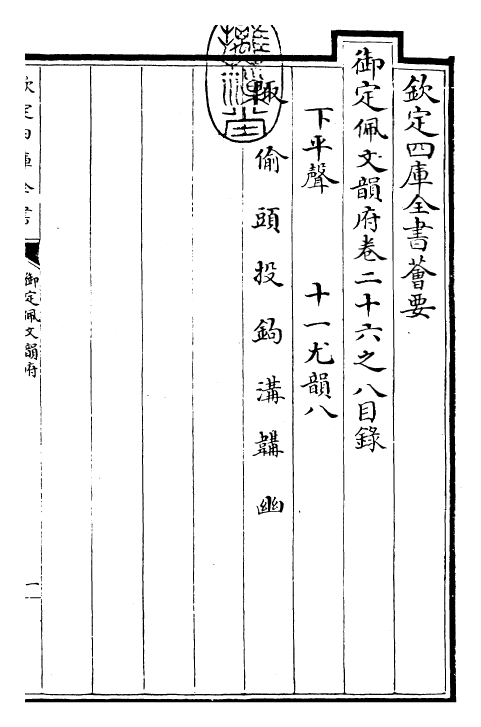 欽定四庫全書薈要
御定佩文韻府卷二十六之八目錄
下平聲　十一尤韻八
偷頭投鈎溝韝幽
欽定四庫全書
御定佩文韻府
一